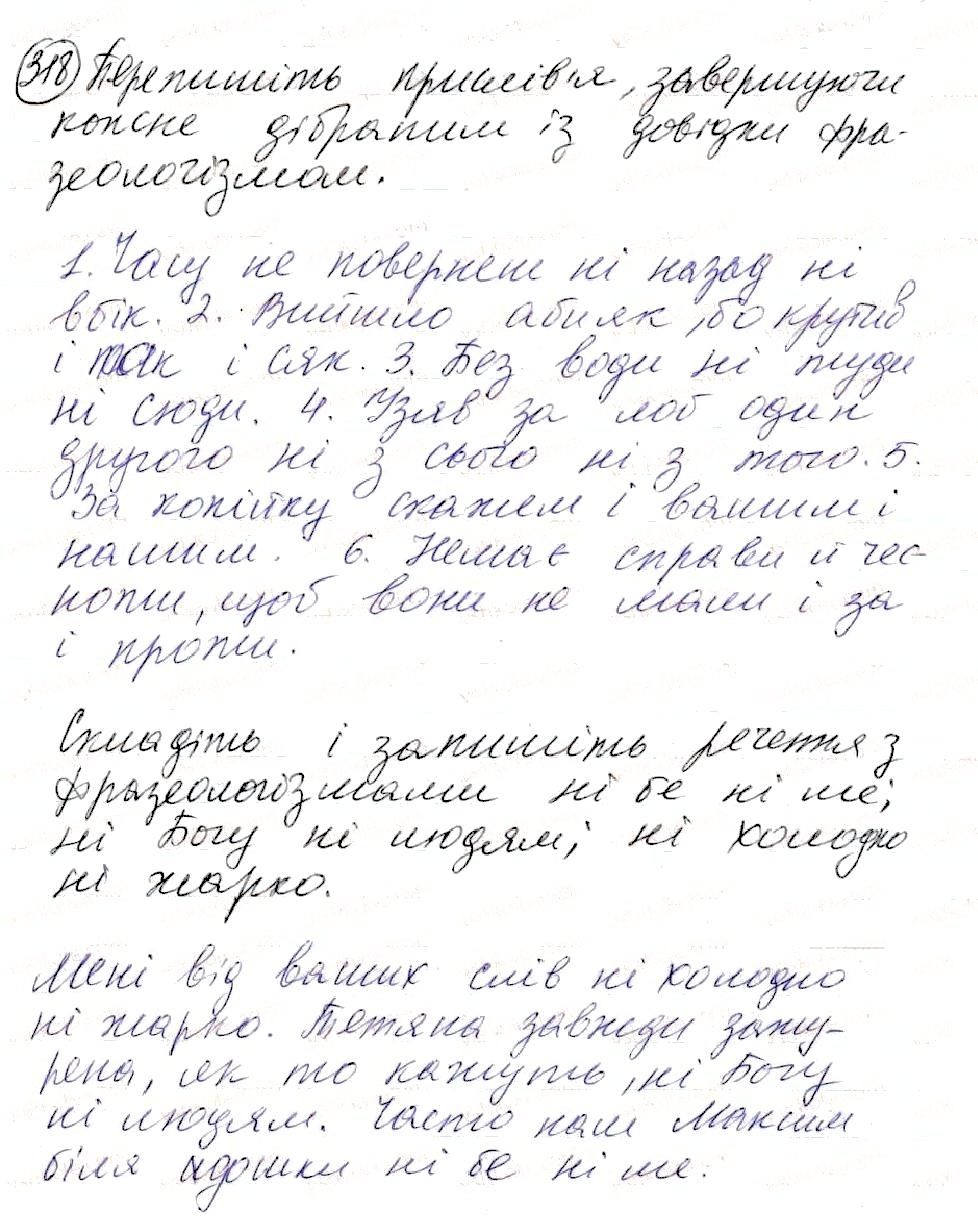 318 Перепишіть прислів'я, завершуючи
кожне дібраним із довідки фра-
зеологізмом.
1. Часу не повернеш ні назад ні
вбік. 2. Вийшло абияк, бо крутив
і так і сяк. 3. Без води ні туди
ні сюди. 4. Узяв за лоб один
другого ні з сього ні з того. 5.
За копійку скажем і вашим і
нашим. 6. Немає справи й чес-
ноти, щоб вони не мали і за
і проти.
Складіть і запишіть речення з
фразеологізмами ні бе ні ме;
ні Богу ні людям; ні холодно
ні жарко.
Мені від ваших слів ні холодно
ні жарко. Тетяна завжди зажу-
рена, як то кажуть, ні Богу
ні людям. Часто наш Максим
біля дошки ні бе ні ме.